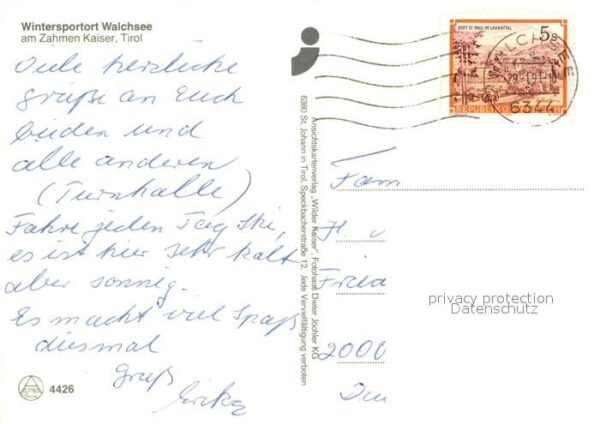 Wintersportort Walchsee
am Zahmen Kaiser, Tirol
Viele herzliche
grüße an Euch
beiden und
alle anderen
(Turnhalle)
Fahre jeden Tag Ski,
es ist hier sehr kalt
aber sonnig.
Es macht viel Spaß
diesmal
Gruß
Erika
4426
Ansichtskartenverlag „Wilder Kaiser", Fotohaus Dieter Jöchler KG
6380 St. Johann in Tirol, Speckbacherstraße 12. Jede Vervielfältigung verboten
STIFT ST. PAUL IM LAVANTTAL
5s
REPUBLIK
6344
Fam
H. u
Fried
privacy protection
Datenschutz
2000